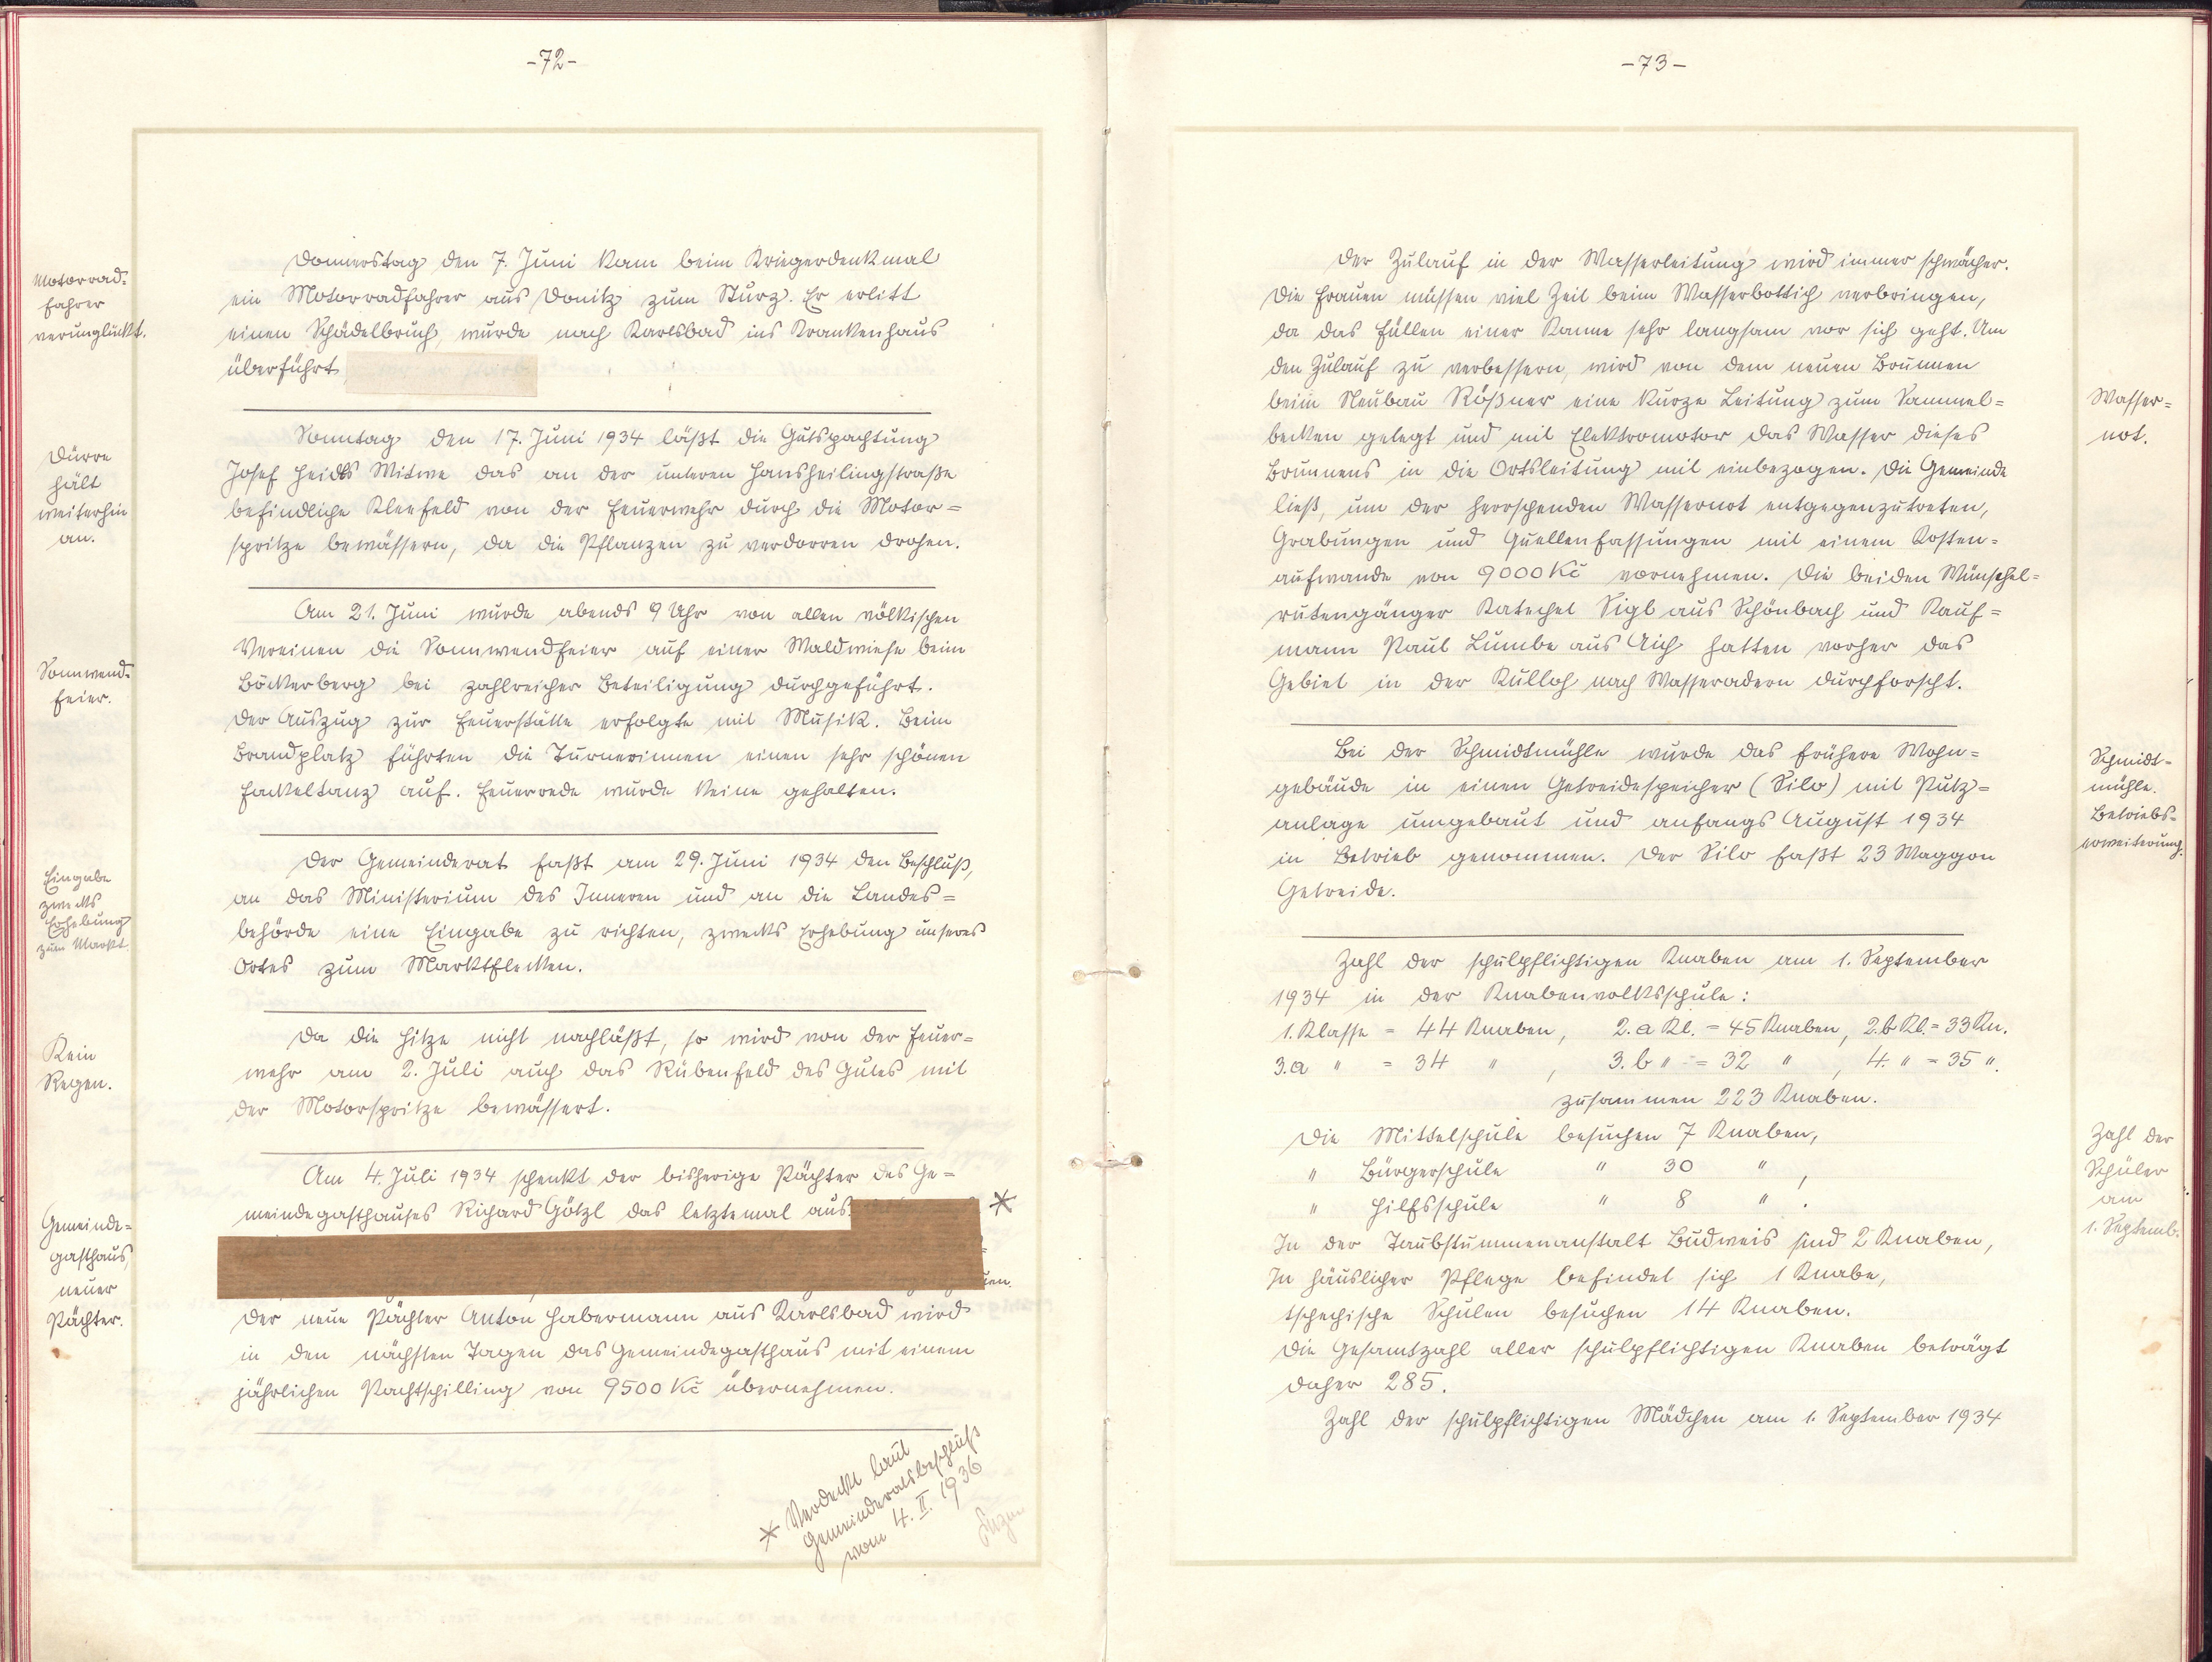 -72-
Motorrad-
fahrer
verunglückt.
Donnerstag den 7. Juni kam beim Kriegerdenkmal
ein Motorradfahrer aus Donitz zum Sturz. Er erlitt
einen Schädelbruch, wurde nach Karlsbad ins Krankenhaus
überführt
Dürre
hält
weiterhin
an.
Sonntag den 17. Juni 1934 läßt die Gutspachtung
Josef Heidls Witwe das an der unteren Hansheilingstraße
befindliche Kleefeld von der Feuerwehr durch die Motor=
spritze bewässern, da die Pflanzen zu verdorren drohen.
Sonnwend-
feier.
Am 21. Juni wurde abends 9 Uhr von allen völkischen
Vereinen die Sonnwendfeier auf einer Waldwiese beim
Böckerberg bei zahlreicher Beteiligung durchgeführt.
Der Auszug zur Feuerstätte erfolgte mit Musik. Beim
Brandplatz führten die Turnerinnen einen sehr schönen
Fackeltanz auf. Feuerrede wurde keine gehalten.
Eingabe
zwecks
Erhebung
zum Markt.
Der Gemeinderat faßt am 29. Juni 1934 den Beschluß,
an das Ministerium des Inneren und an die Landes=
behörde eine Eingabe zu richten, zwecks Erhebung unseres
Ortes zum Marktflecken.
Kein
Regen.
Da die Hitze nicht nachläßt, so wird von der Feuer=
wehr am 2. Juli auch das Rübenfeld des Gutes mit
der Motorspritze bewässert.
Gemeinde=
gasthaus,
neuer
Pächter.
Am 4. Juli 1934 schenkt der bisherige Pächter des Ge=
meindegasthauses Richard Götzl das letztemal aus. *
Der neue Pächter Anton Habermann aus Karlsbad wird
in den nächsten Tagen das Gemeindegasthaus mit einem
jährlichen Pachtschilling von 9500 Kč übernehmen.
* Verdeckt laut
Gemeinderatsbeschluß
vom 4. II. 1936
-73-
Der Zulauf in der Wasserleitung wird immer schwächer.
Die Frauen müssen viel Zeit beim Wasserbottich verbringen,
da das Füllen einer Kanne sehr langsam vor sich geht. Um
den Zulauf zu verbessern, wird von dem neuen Brunnen
beim Neubau Rößner eine kurze Leitung zum Sammel=
becken gelegt und mit Elektromotor das Wasser dieses
Brunnens in die Ortsleitung mit einbezogen. Die Gemeinde
ließ, um der herrschenden Wassernot entgegenzutreten,
Grabungen und Quellenfassungen mit einem Kosten=
aufwande von 9000 Kč vornehmen. Die beiden Wünschel=
rutengänger Katechet Sigl aus Schönbach und Kauf=
mann Paul Lumbe aus Aich hatten vorher das
Gebiet in der Kulloh nach Wasseradern durchforscht.
Wasser=
not.
Bei der Schmidtmühle wurde das frühere Wohn=
gebäude in einen Getreidespeicher (Silo) mit Putz=
anlage umgebaut und anfangs August 1934
in Betrieb genommen. Der Silo faßt 23 Waggon
Getreide.
Schmidt=
mühle.
Betriebs=
erweiterung.
Zahl der schulpflichtigen Knaben am 1. September
1934 in der Knabenvolksschule:
1. Klasse = 44 Knaben, 2.a Kl. = 45 Knaben, 2.b Kl. = 33 Kn.
3.a " = 34 " , 3.b " = 32 " , 4. " = 35 ".
zusammen 223 Knaben.
Die Mittelschule besuchen 7 Knaben,
" Bürgerschule " 30 " ,
" Hilfsschule " 8 " .
In der Taubstummenanstalt Budweis sind 2 Knaben,
In häuslicher Pflege befindet sich 1 Knabe,
tschechische Schulen besuchen 14 Knaben.
Die Gesamtzahl aller schulpflichtigen Knaben beträgt
daher 285.
Zahl der schulpflichtigen Mädchen am 1. September 1934
Zahl der
Schüler
am
1. Septemb.